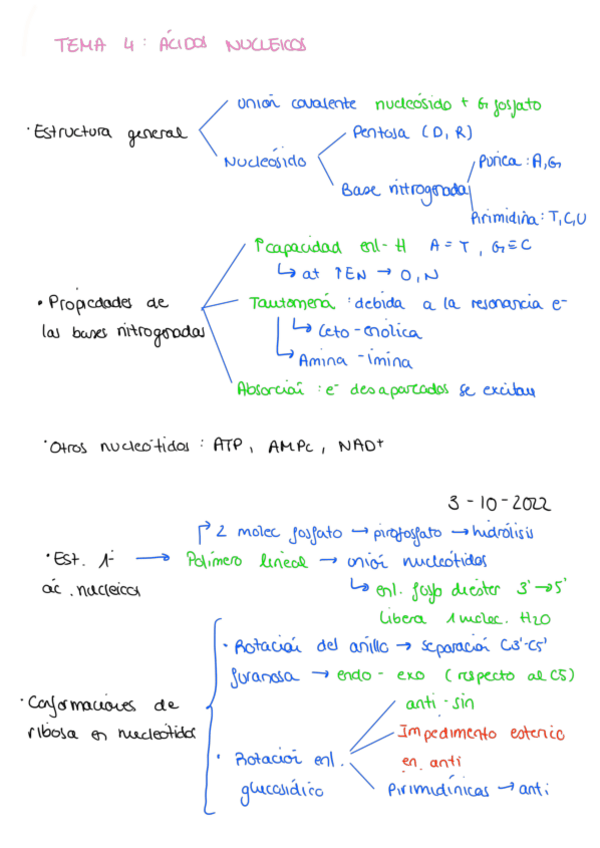 TEMA 4: ÁCIDOS NUCLEICOS
unión covalente nucleósido + G fosfato
· Estructura general
Pentosa (D, R)
Nucleósido
Púrica: A, G
Base nitrogenada
Pirimidina: T, C, U
↑ capacidad enl-H A = T, G ≡ C
↳ at ↑EN → O, N
• Propiedades de
las bases nitrogenadas
Tautomería: debida a la resonancia e-
↳ Ceto-enólica
↳ Amina-imina
Absorción: e- desaparcados se excitan
· Otros nucleótidos: ATP, AMPc, NAD+
3-10-2022
↱ 2 molec fosfato → pirofosfato → hidrólisis
· Est. 1ª → Polímero lineal → unión nucleótidos
ác. nucleicos
↳ enl. fosfodiester 3' → 5'
libera 1 molec. H2O
· Rotación del anillo → separación C3'-C5'
furanosa → endo - exo (respecto al C5)
· Conformaciones de
ribosa en nucleótidos
anti - sin
Impedimento esteric
en anti
· Rotación enl.
glucosídico
Pirimidínicas → anti